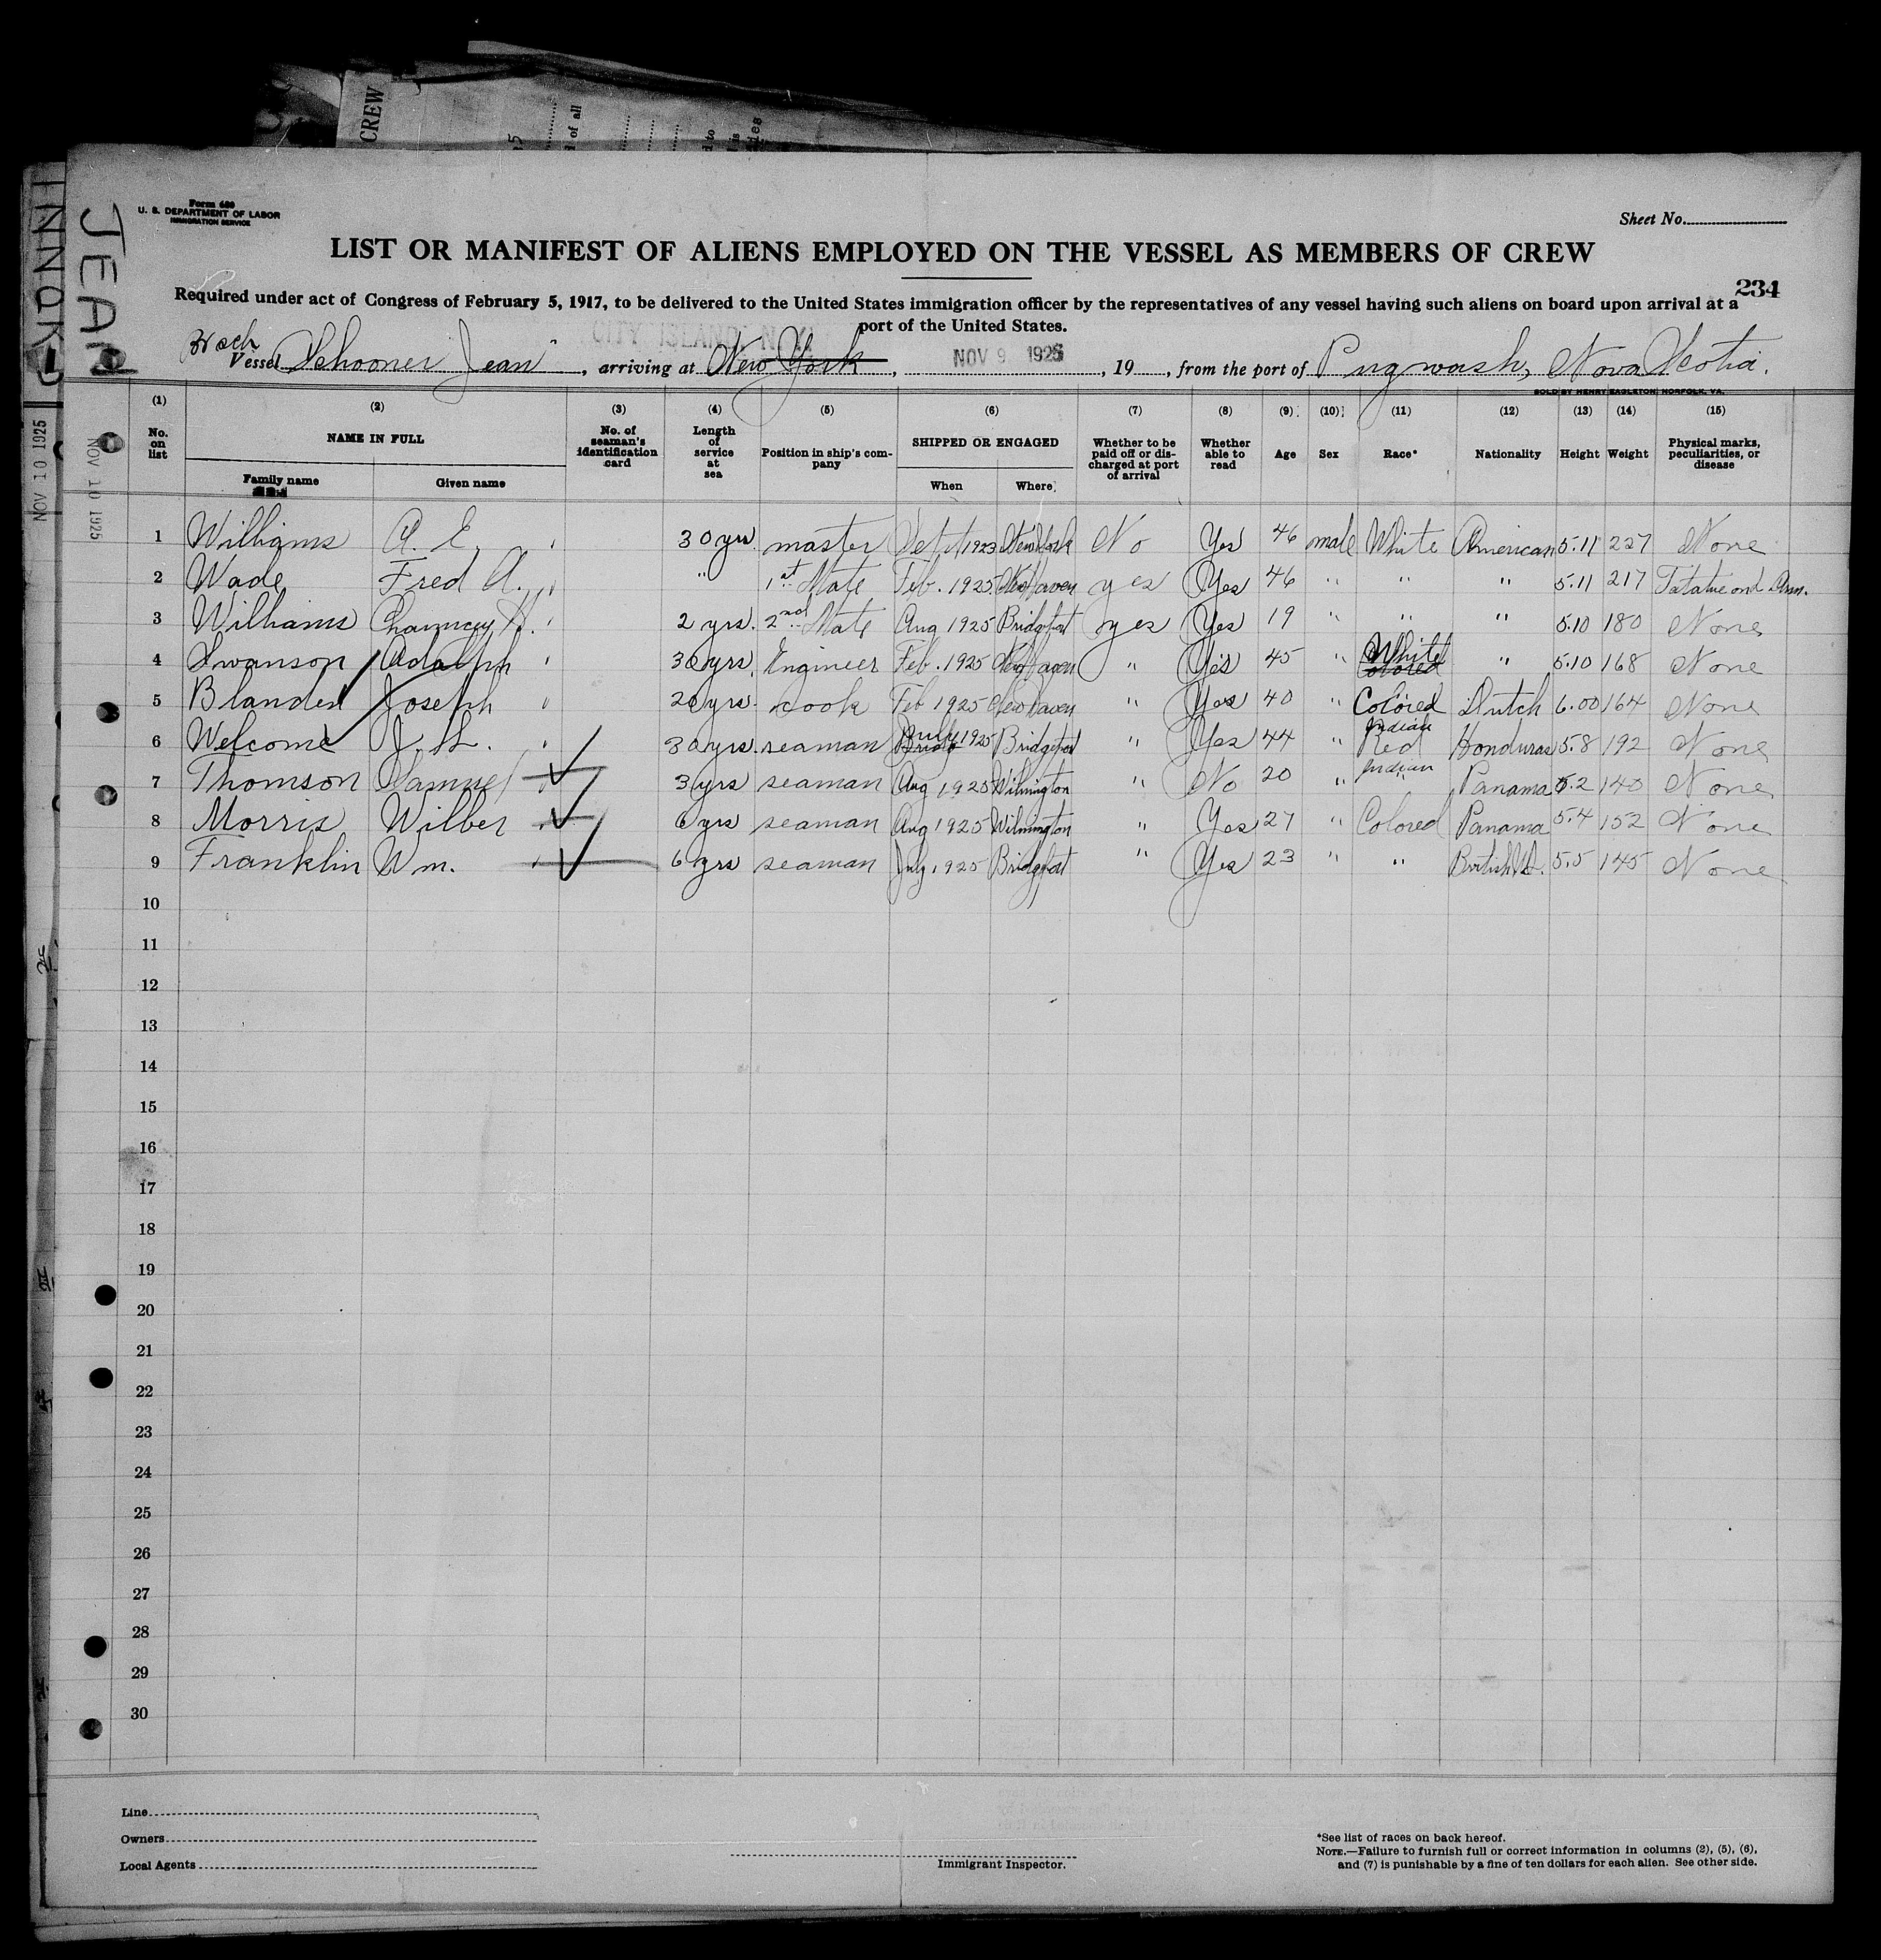 CREW
of all
INNOKO
JEAN
NOV 10 1925
NOV 10 1925
Form 680
U. S. DEPARTMENT OF LABOR
IMMIGRATION SERVICE
Sheet No.
LIST OR MANIFEST OF ALIENS EMPLOYED ON THE VESSEL AS MEMBERS OF CREW
234
Required under act of Congress of February 5, 1917, to be delivered to the United States immigration officer by the representatives of any vessel having such aliens on board upon arrival at a
port of the United States.
CITY ISLAND, N.Y.
Vessel Schooner "Jean", arriving at New York, NOV 9 1925, 19, from the port of Pugwash, Nova Scotia.
SOLD BY HENRY EAGLETON, NORFOLK, VA.
(1) (2) (3) (4) (5) (6) (7) (8) (9) (10) (11) (12) (13) (14) (15)
No. on list
NAME IN FULL
Family name Given name
No. of seaman's identification card
Length of service at sea
Position in ship's company
SHIPPED OR ENGAGED
When Where
Whether to be paid off or discharged at port of arrival
Whether able to read
Age
Sex
Race*
Nationality
Height
Weight
Physical marks, peculiarities, or disease
1 Williams A. E. 30 yrs. master Sept 1923 New York No Yes 46 male White American 5.11 227 None
2 Wade Fred A. " 1st Mate Feb. 1925 New Haven yes Yes 46 " " " 5.11 217 Tatatue ond Arm.
3 Williams Chauncey A. 2 yrs. 2nd Mate Aug 1925 Bridgeport yes Yes 19 " " " 5.10 180 None
4 Swanson Adolph 30 yrs. Engineer Feb. 1925 New Haven " Yes 45 " White Colored " 5.10 168 None
5 Blanded Joseph 20 yrs. cook Feb 1925 New Haven " Yes 40 " Colored Dutch 6.00 164 None
6 Welcome J. H. 30 yrs. seaman July 1925 Bridgeport " Yes 44 " Indian Red Honduras 5.8 192 None
7 Thomson Samuel 3 yrs seaman Aug 1925 Wilmington " No 20 " Indian " Panama 5.2 140 None
8 Morris Wilber 6 yrs seaman Aug 1925 Wilmington " Yes 27 " Colored Panama 5.4 152 None
9 Franklin Wm. 6 yrs seaman July 1925 Bridgeport " Yes 23 " " British W. 5.5 145 None
10
11
12
13
14
15
16
17
18
19
20
21
22
23
24
25
26
27
28
29
30
Line
Owners
Local Agents
Immigrant Inspector.
*See list of races on back hereof.
NOTE.—Failure to furnish full or correct information in columns (2), (5), (6),
and (7) is punishable by a fine of ten dollars for each alien. See other side.